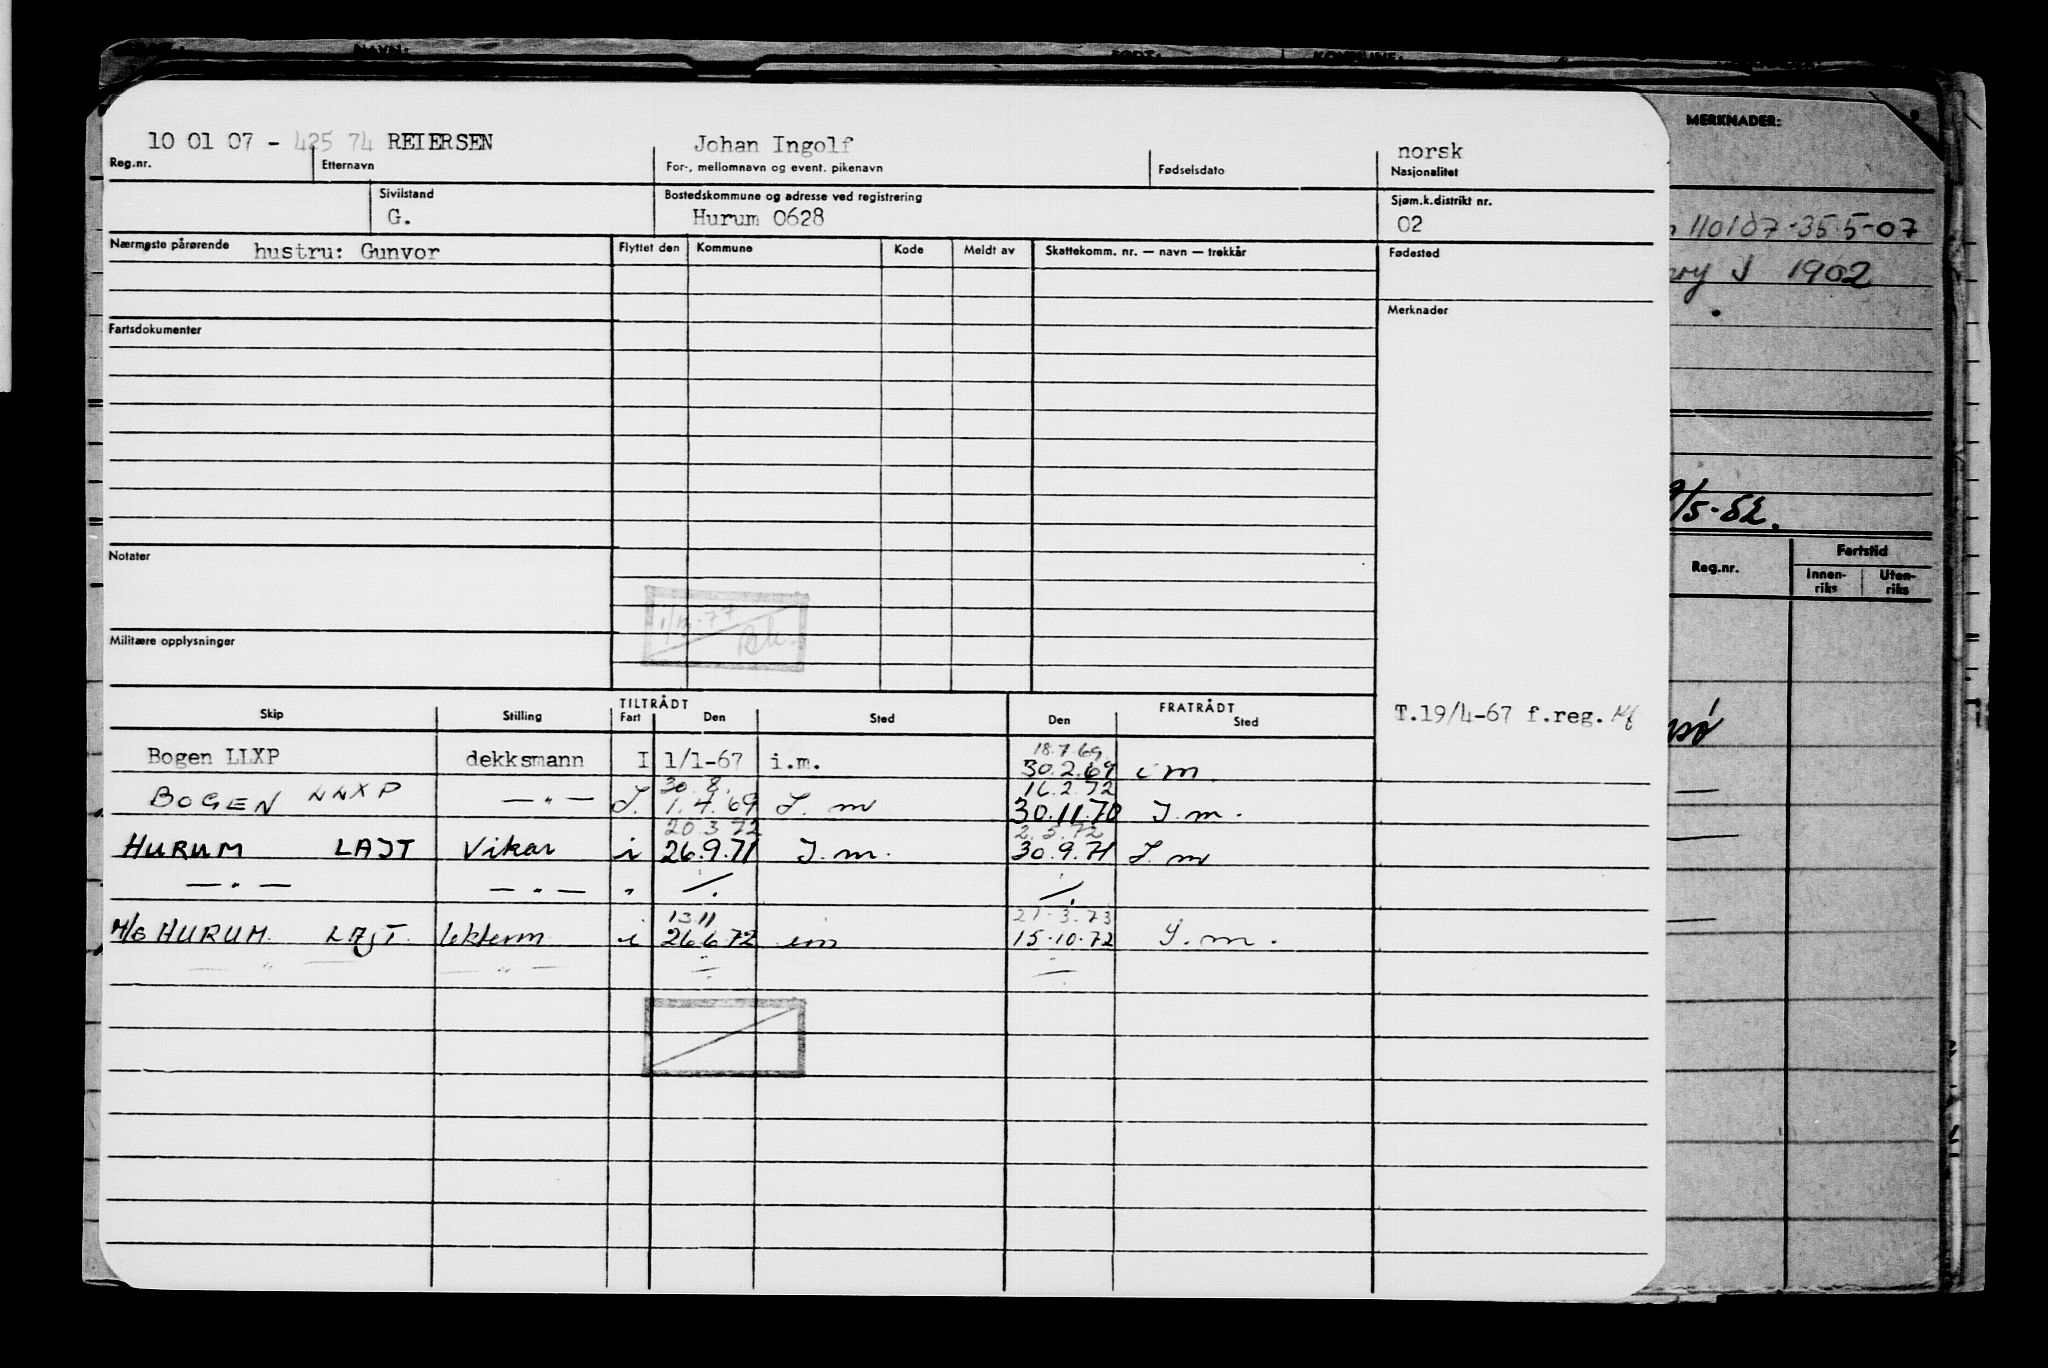 NAVN: FØDT: KOMMUNE:
MERKNADER:
10 01 07 - 425 74 REIERSEN Johan Ingolf norsk
Reg.nr. Etternavn For-, mellomnavn og event. pikenavn Fødselsdato Nasjonalitet
Sivilstand Bostedskommune og adresse ved registrering Sjøm.k.distrikt nr.
G. Hurum 0628 02
110107-355-07
Nærmeste pårørende hustru: Gunvor Flyttet den Kommune Kode Meldt av Skattekomm. nr. — navn — trekkår Fødested
1902
Merknader
Fartsdokumenter
/5-52.
Notater
Reg.nr. Fartstid
Innen-riks Uten-riks
Militære opplysninger
TILTRÅDT FRATRÅDT
Skip Stilling Fart Den Sted Den Sted
T.19/4-67 f.reg.
18.7.69
Bogen LLXP dekksmann I 1/1-67 i.m. 30.2.69 i m.
30.8. 16.2.72
BOGEN LLXP — " — I. 1.4.69 I. m 30.11.70 I.m.
20.3.72 2.5.72
HURUM LAJT Vikar i 26.9.71 I.m. 30.9.71 I.m
— " — — " — "
13.11 21.3.73
M/G HURUM. LAJT. i 26.6.72 im 15.10.72 I.m.
— " — — " —